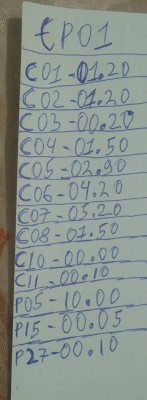 EP01
C01-01.20
C02-01.20
C03-00.20
C04-01.50
C05-02.90
C06-04.20
C07-05.20
C08-07.50
C10-00.00
C11-00.10
P05-10.00
P15-00.05
P27-00.10